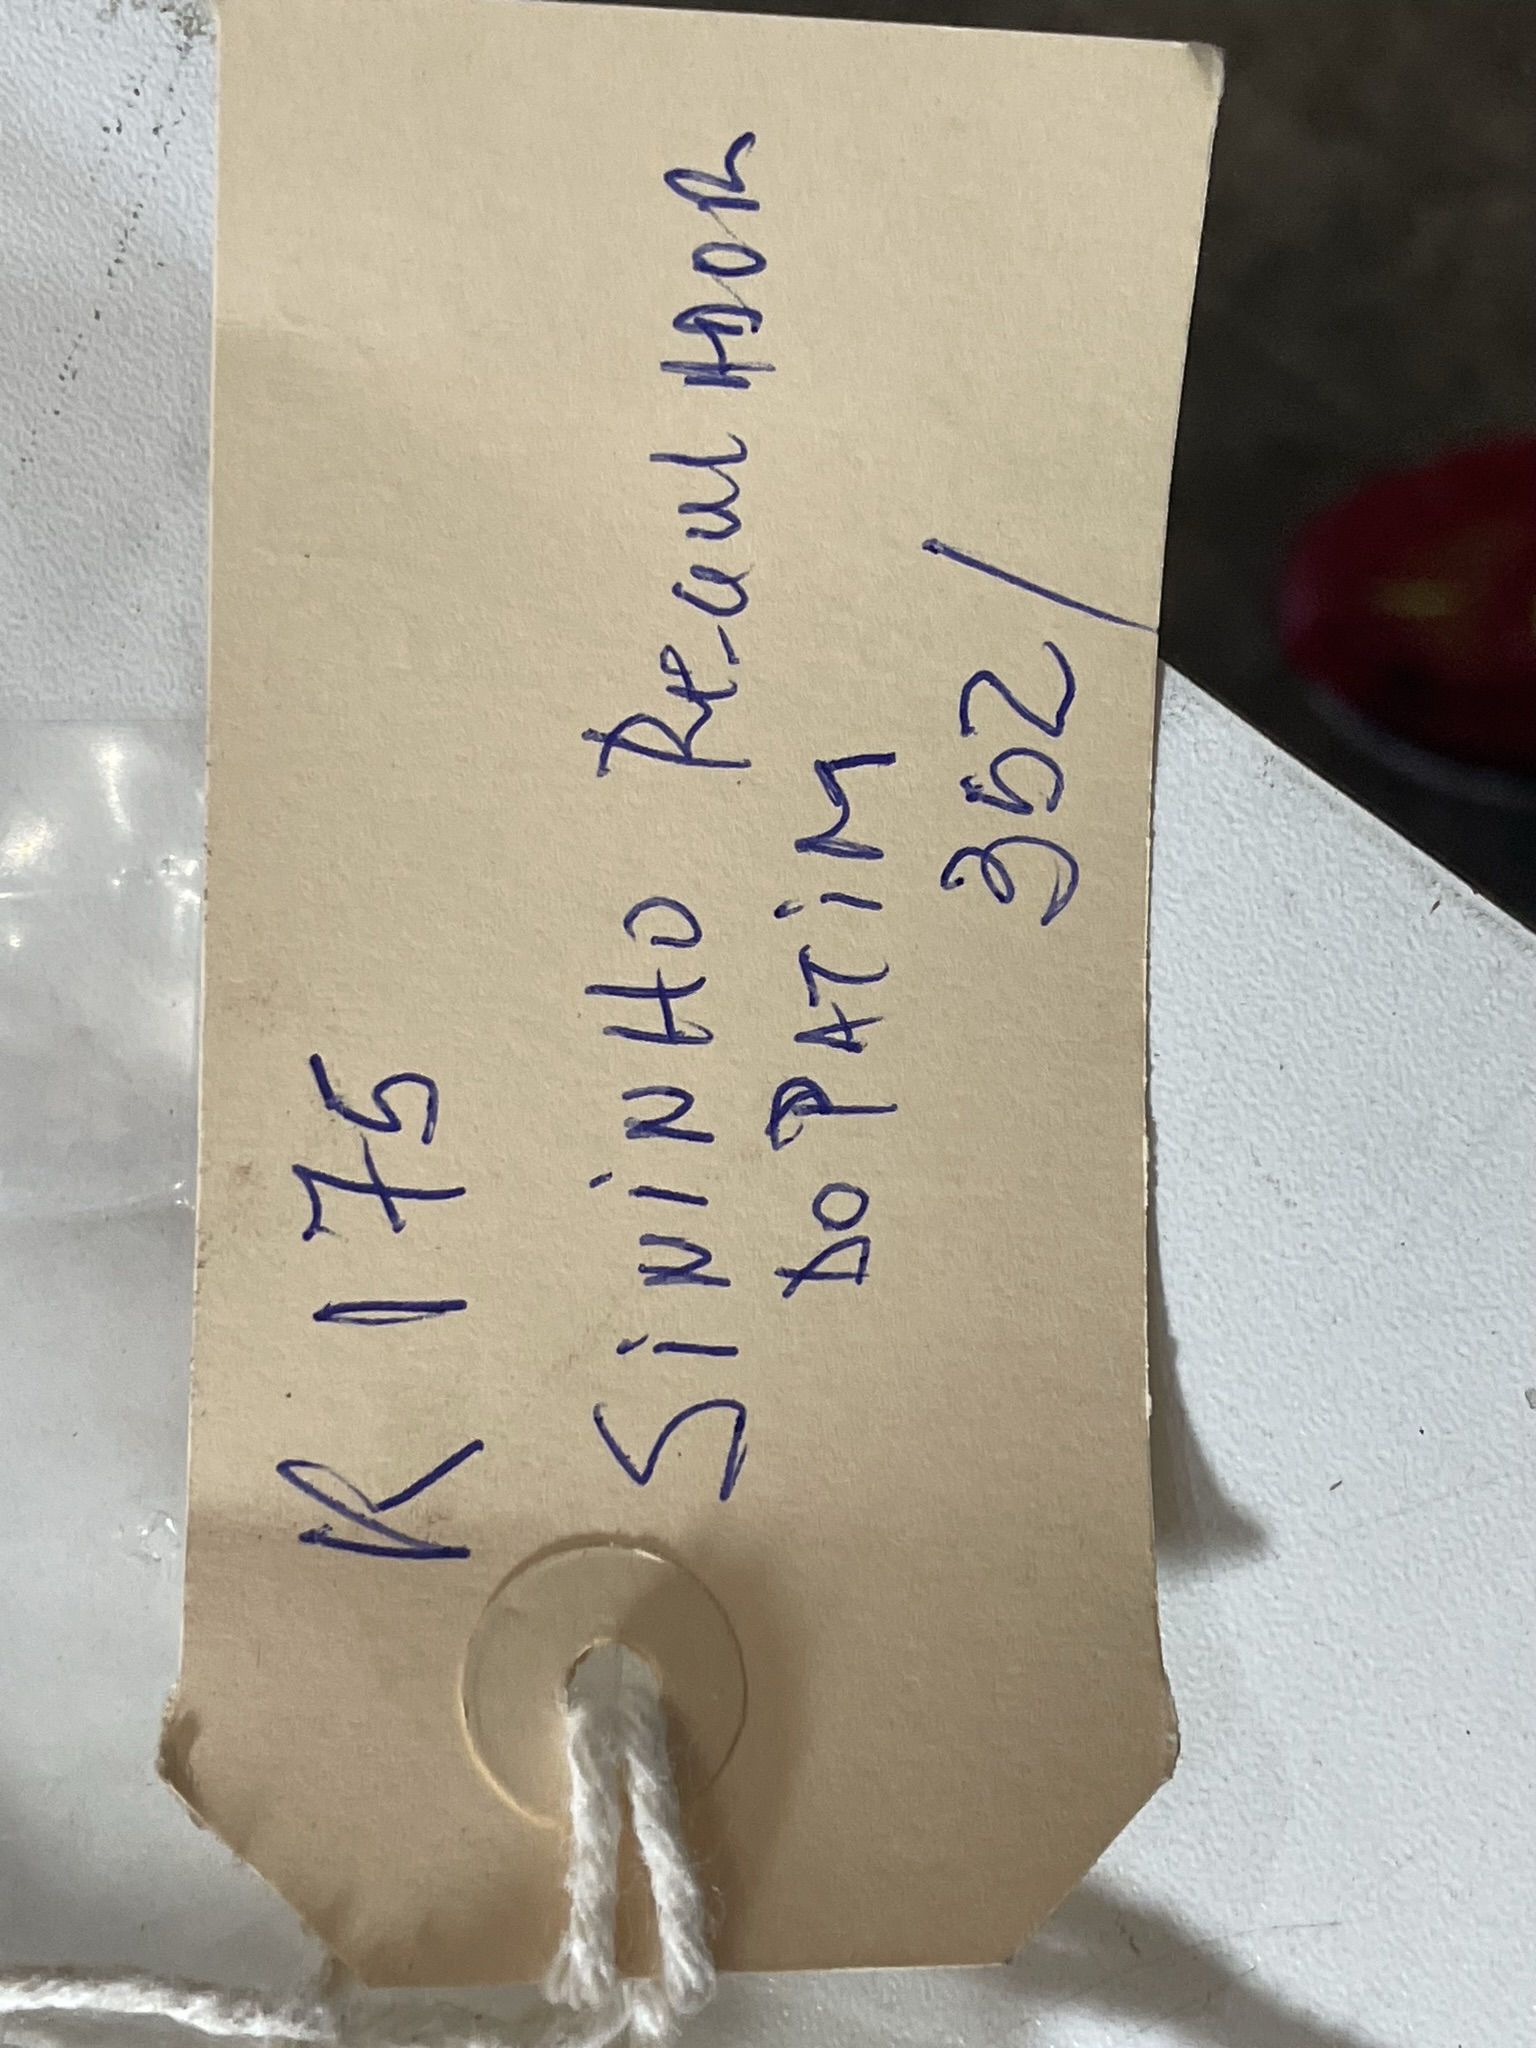 R 175
SiNiNHO Regulador
DO PATiM
352/